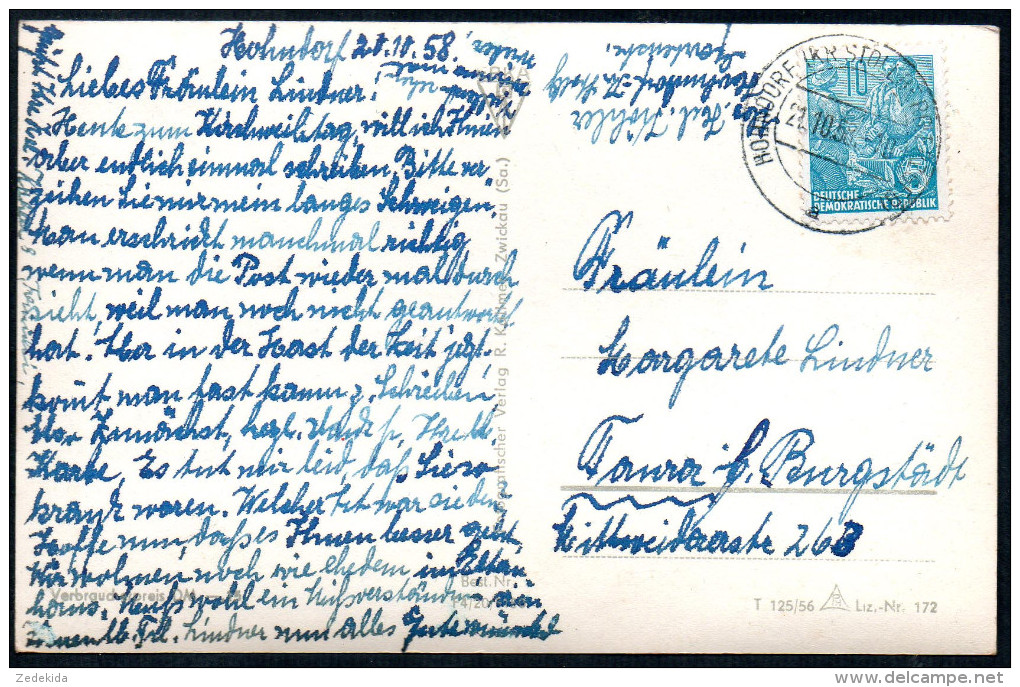 Hohndorf 20.10.58.
Liebes Fräulein Lindner!
Heute zum Kirchweihtag, will ich Ihnen
aber endlich einmal schreiben. Bitte ver
zeihen Sie mir mein langes Schweigen.
Man erschrickt manchmal richtig
wenn man die Post wieder mal durch
sieht, weil man noch nicht geantwortet
hat. Aber in der Hast der Zeit jetzt.
kommt man fast kaum z. Schreiben
Zunächst, herzl. Dank f. Ihre
Karte, Es tut mir leid, daß Sie so
krank waren. Welcher Art war sie denn
Hoffe nun, daß es Ihnen besser geht,
Wir wohnen noch wie ehedem im Eltern
haus. ein Mißverständnis
Ihnen lb. Frl. Lindner nun alles Gute
Frl. Köhler
Hohndorf
HOHNDORF
21.10.5
10
5
DEUTSCHE
DEMOKRATISCHE REPUBLIK
Fräulein
Margarete Lindner
Taura b. Burgstädt
Mittweidaerstr 26B
Verlag R. Zwickau (Sa.)
Verbraucherpreis DM
Best.Nr.
T 125/56 Liz.-Nr. 172
Zedekida